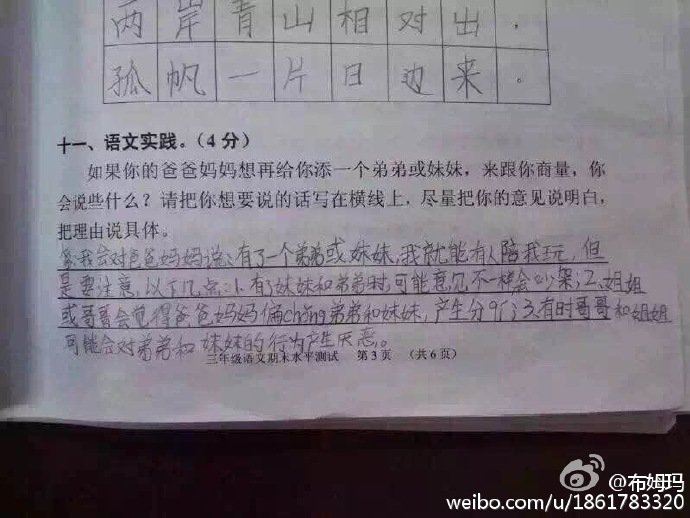 两岸青山相对出，
孤帆一片日边来。
十一、语文实践。（4 分）
如果你的爸爸妈妈想再给你添一个弟弟或妹妹，来跟你商量，你
会说些什么？请把你想要说的话写在横线上，尽量把你的意见说明白，
把理由说具体。
我会对爸爸妈妈说：有了一个弟弟或妹妹，我就能有人陪我玩，但
是要注意以下几点：1、有了妹妹和弟弟时，可能意见不一样会吵架；2、姐姐
或哥哥会觉得爸爸妈妈偏chǒng弟弟和妹妹，产生分qí；3、有时哥哥和姐姐
可能会对弟弟和妹妹的行为产生厌恶。
三年级语文期末水平测试 第 3 页 （共 6 页）
@布姆玛
weibo.com/u/1861783320